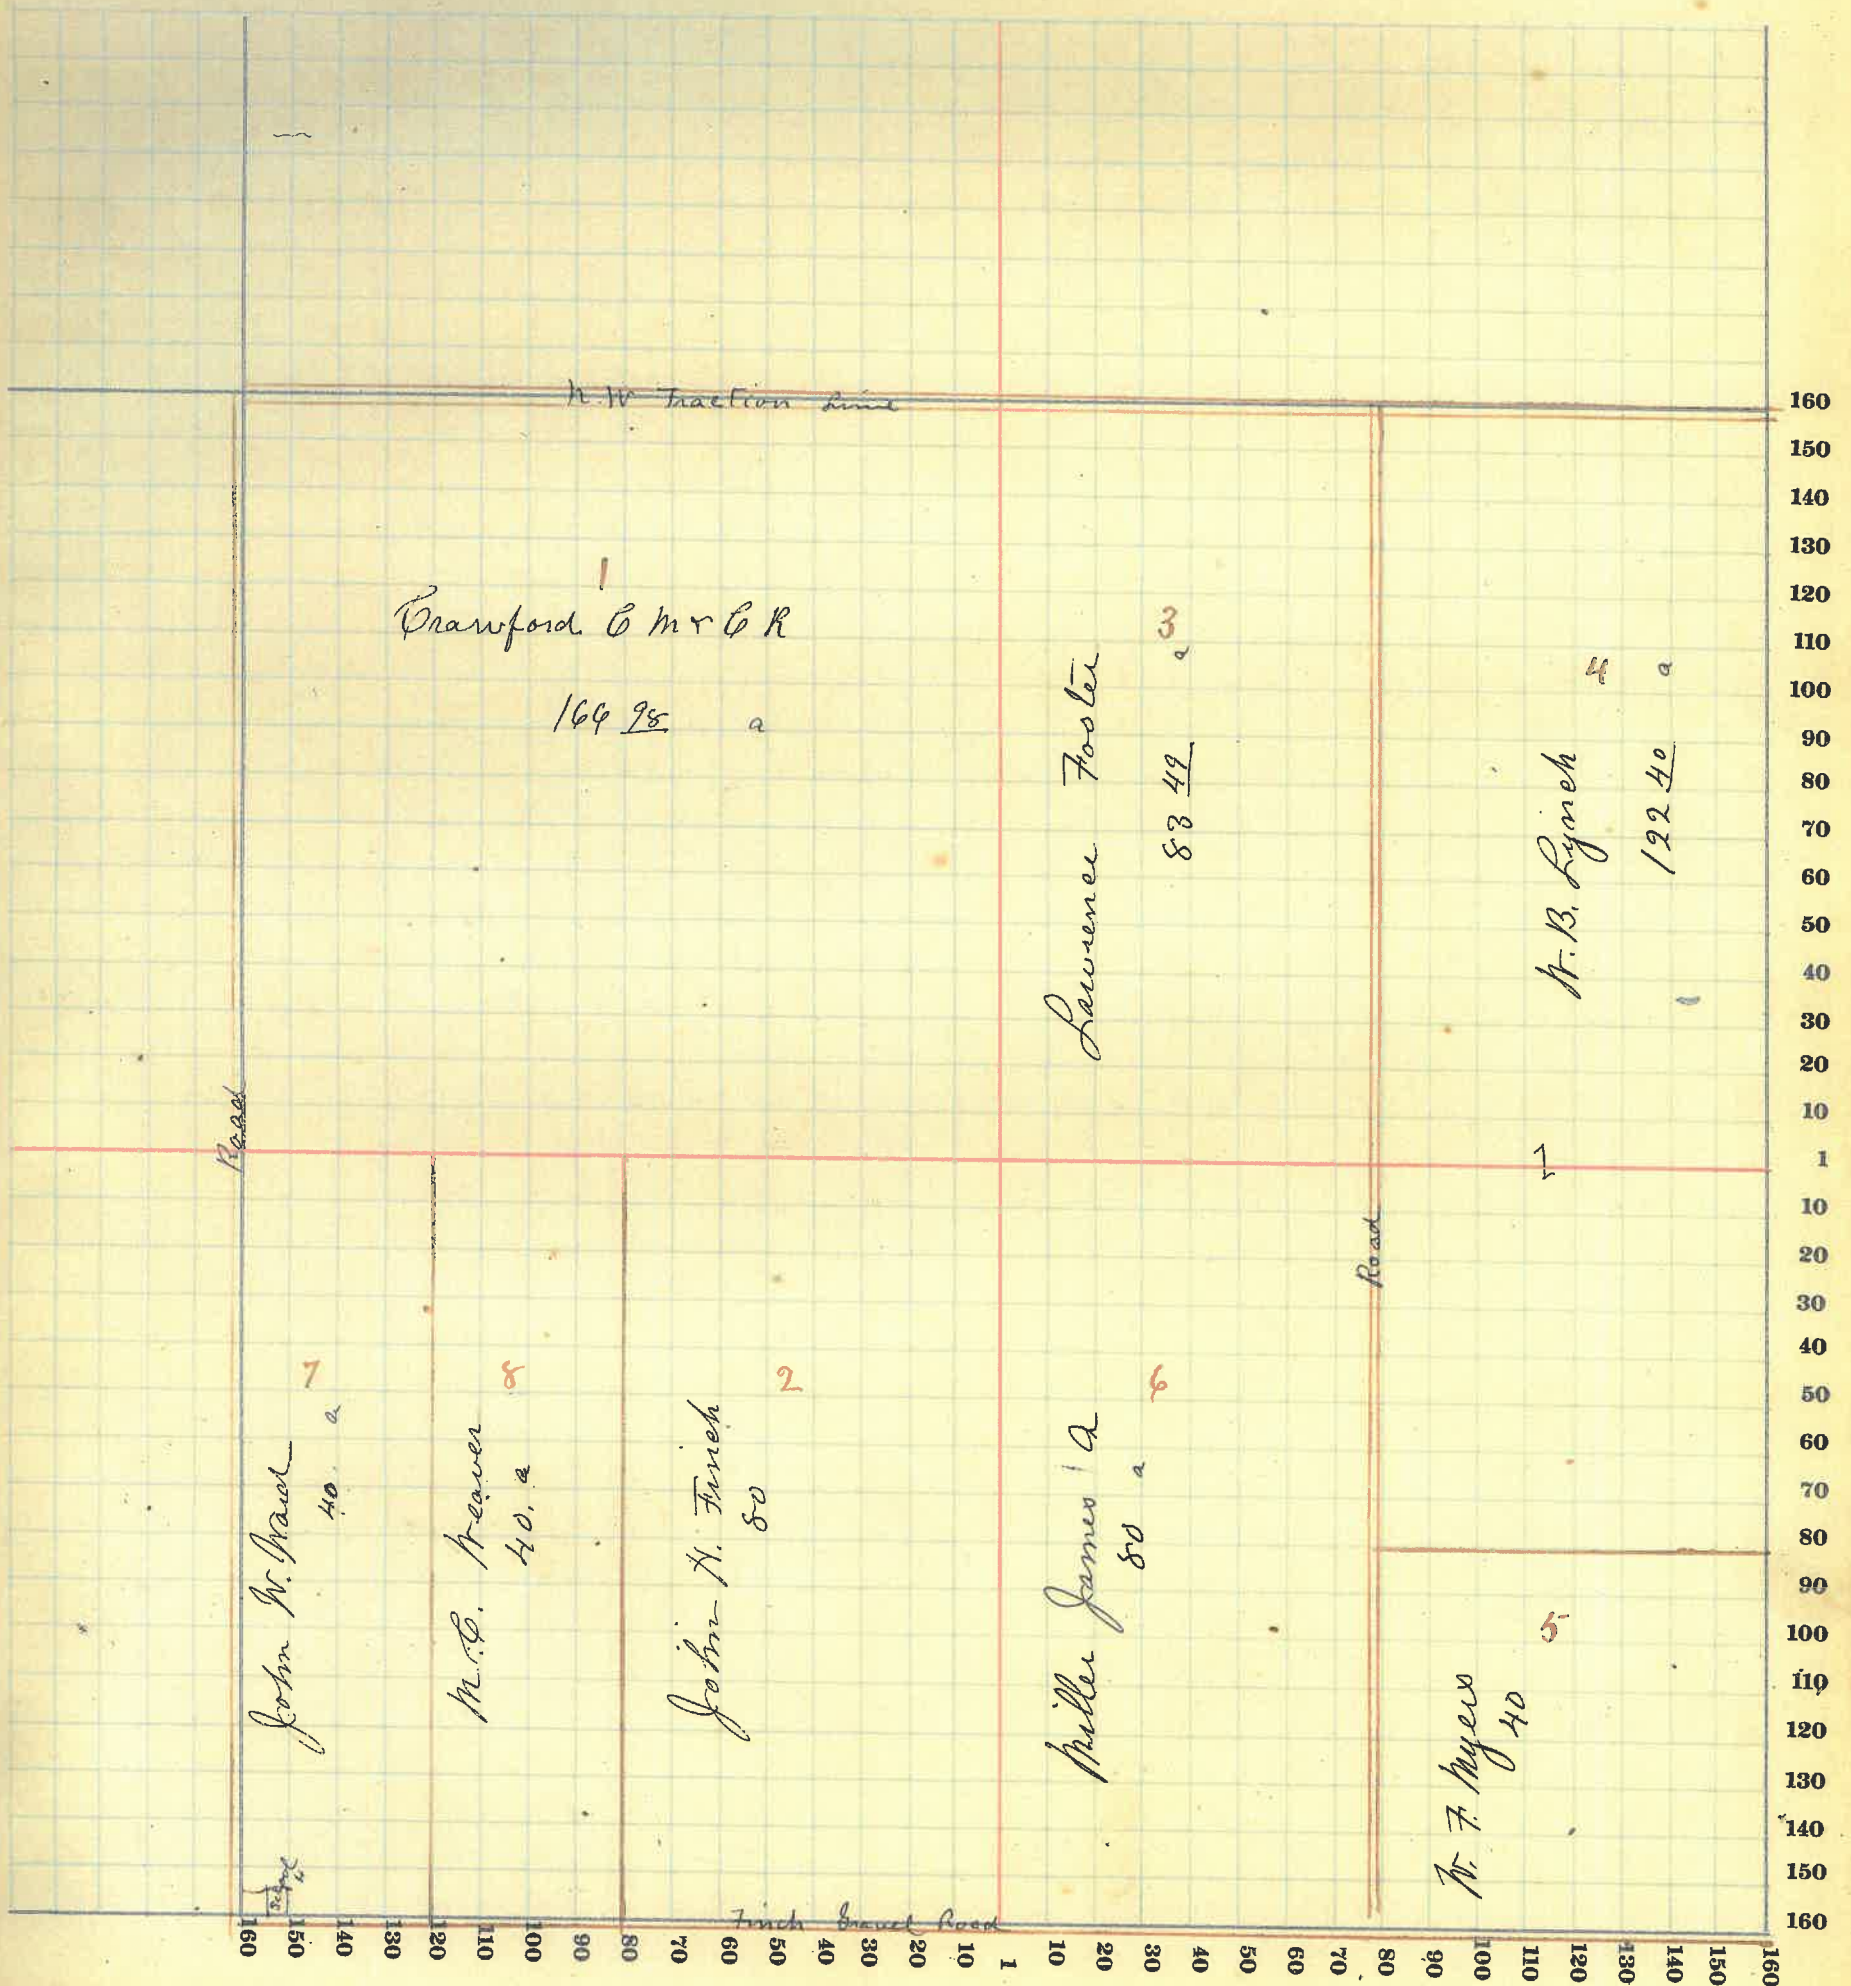 N.W Traction Line
1
Crawford C M & C R
166 98 a
3
Lawrence Foster
83 49 a
4
W. B. Lynch
122 40 a
Road
Road
7
John W. Ward
40 a
8
M. C. Weaver
40. a
2
John H. Finch
80
6
Miller James A
80 a
5
W. F. Myers
40
School
Finch Gravel Road
160
150
140
130
120
110
100
90
80
70
60
50
40
30
20
10
1
10
20
30
40
50
60
70
80
90
100
110
120
130
140
150
160
160 150 140 130 120 110 100 90 80 70 60 50 40 30 20 10 1 10 20 30 40 50 60 70 80 90 100 110 120 130 140 150 160